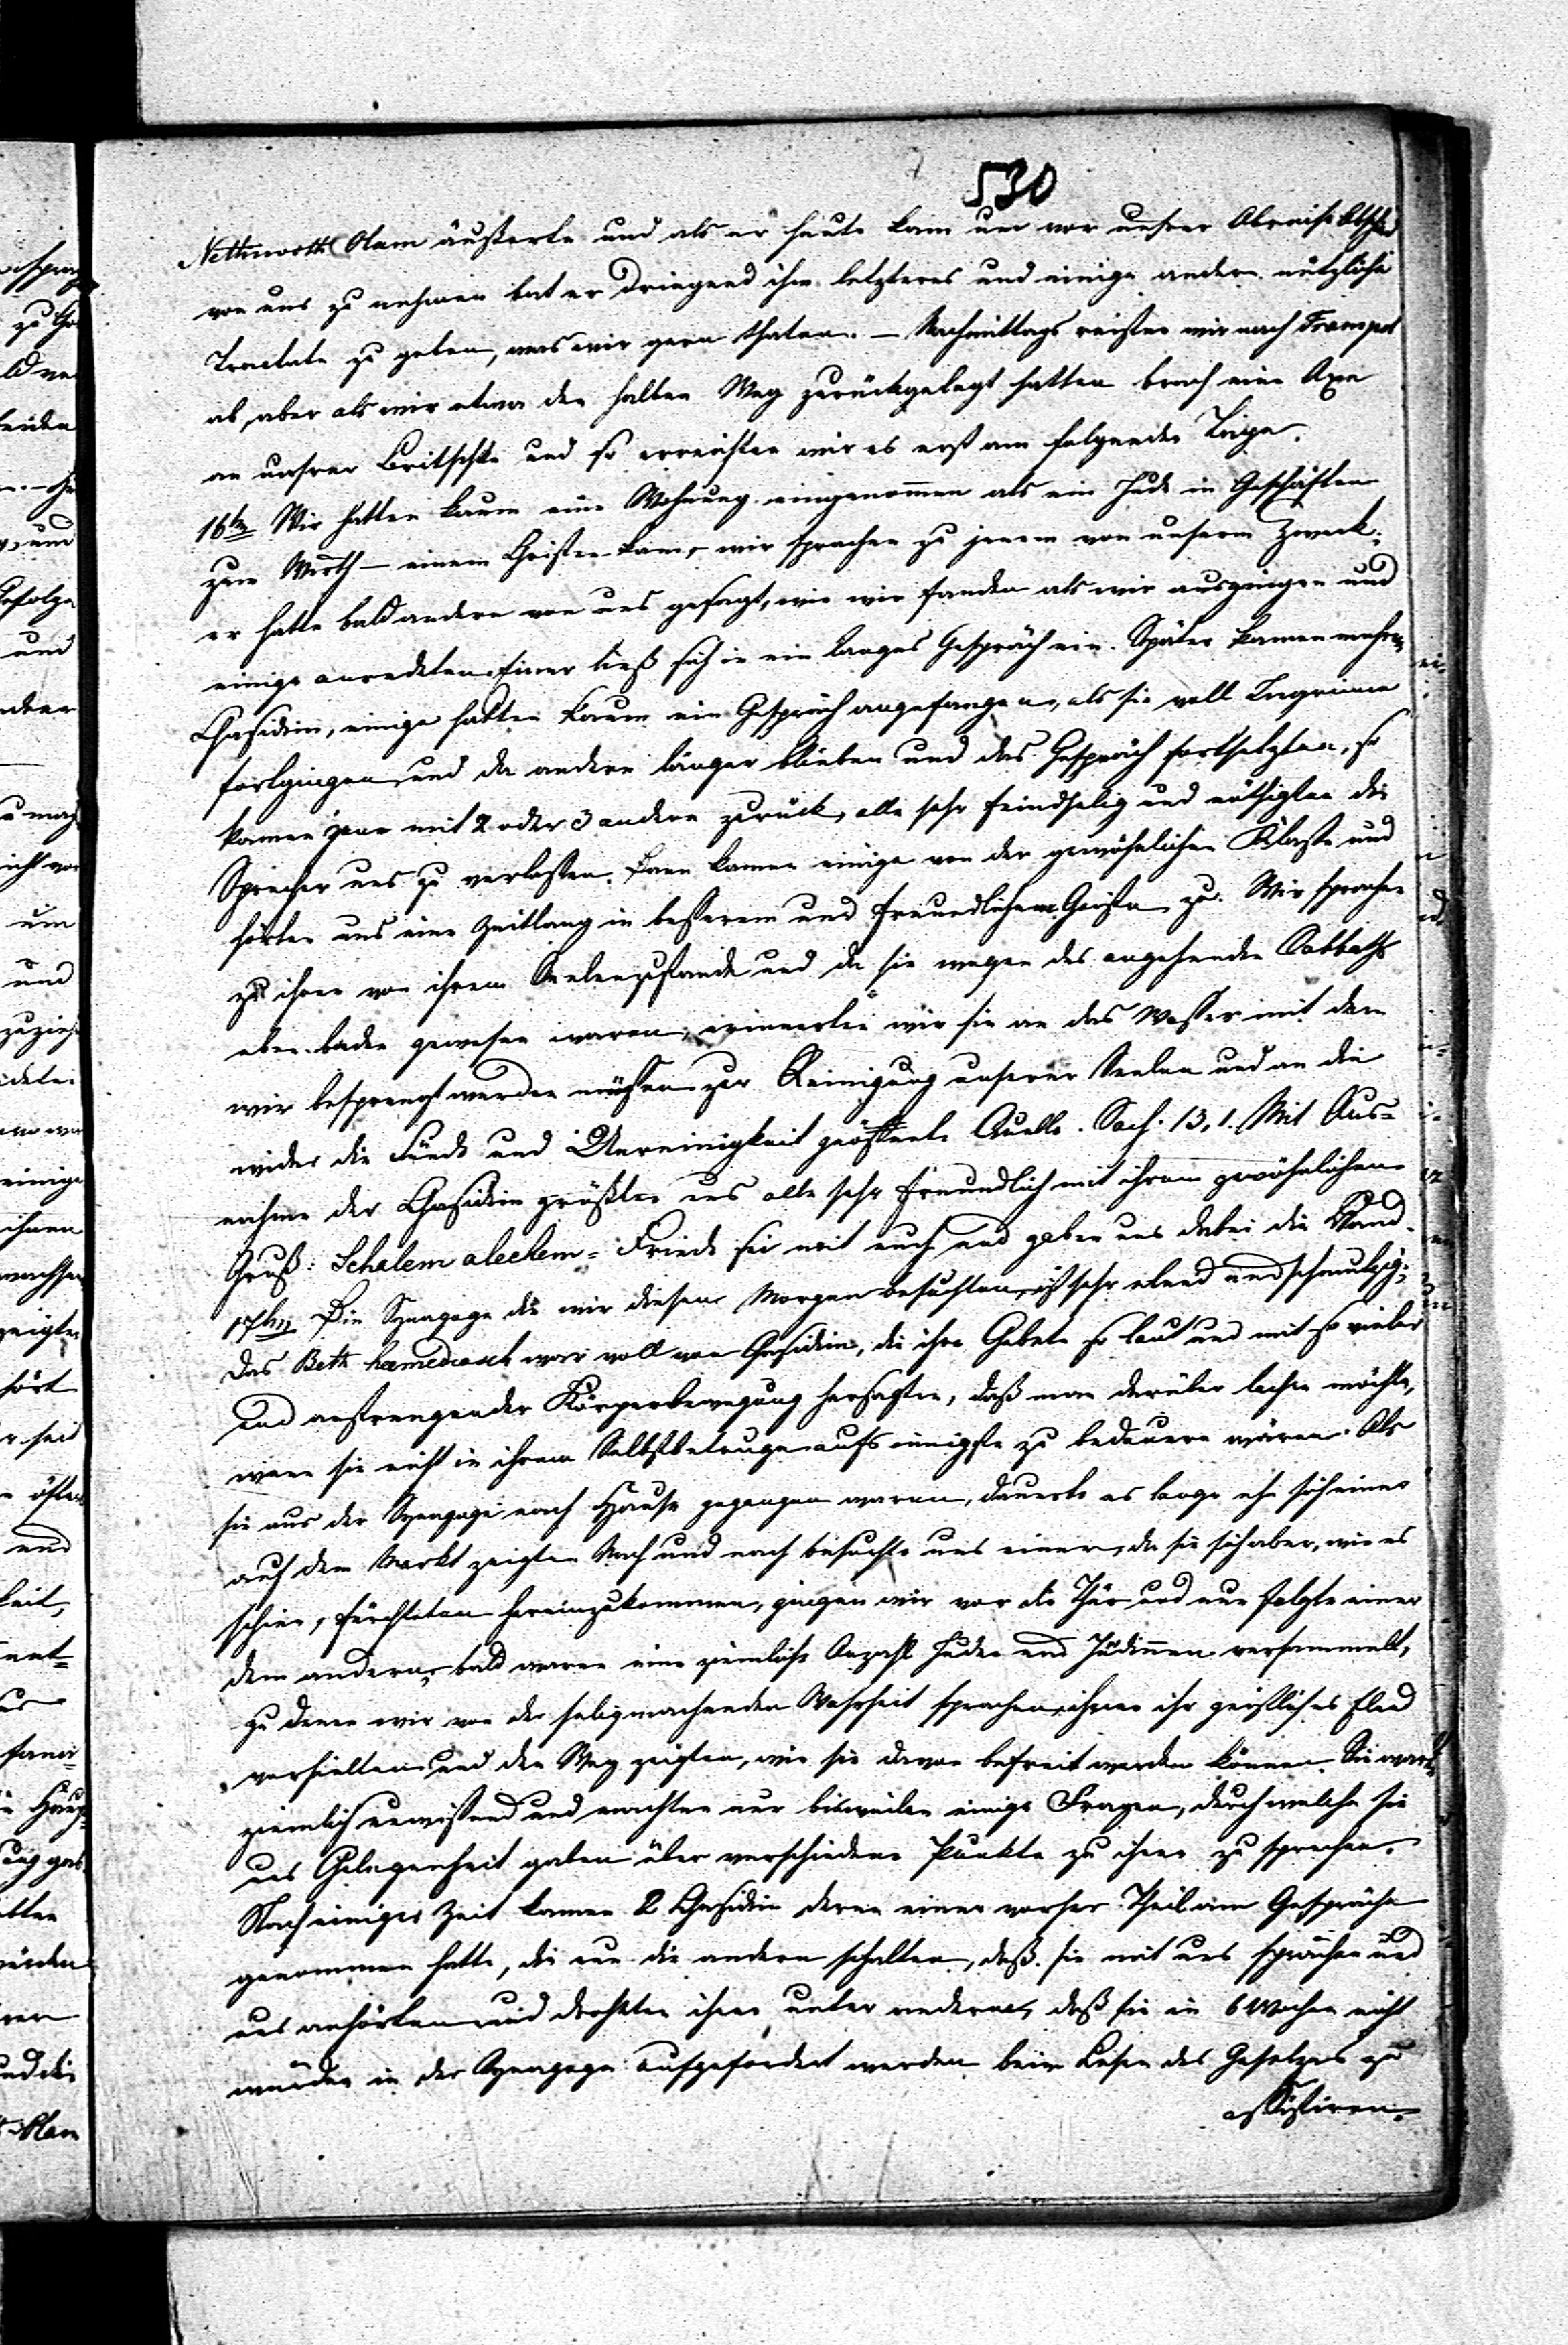 530
Nethiwoth Olam äußerte und als er heute kam um vor unsrer Abreise Abschied
von uns zu nehmen bat er dringend ihm letzteres und einige andere nützliche
Tractate zu geben, was wir gern thaten. – Nachmittags reisten wir nach Frampol
ab, aber als wir etwa den halben Weg zurückgelegt hatten brach eine Axe
an unsrer Britschke und so erreichten wir es erst am folgenden Tage.
16ten Wir hatten kaum eine Wohnung eingenommen als ein Jude in Geschäften
zum Wirth – einem Christen kam, wir sprachen zu jenem von unserm Zweck;
er hatte bald andern von uns gesagt, wie wir fanden als wir ausgingen und
einige anredeten. Einer ließ sich in ein langes Gespräch ein. Später kamen mehrere
Chasidim, einige hatten kaum ein Gespräch angefangen, als sie voll Ingrimm
fortgingen, und da andere länger blieben und das Gespräch fortsetzten, so
kamen jene mit 2 oder 3 andern zurück, alle sehr feindselig und nöthigten die
Sprecher uns zu verlassen. Dann kamen einige von der gewöhnlichen Klasse und
hörten uns eine Zeitlang in besserem und freundlicherem Geiste zu. Wir sprachen
zu ihnen von ihrem Seelenzustande und da sie wegen des angehenden Sabbaths
eben baden gewesen waren, erinnerten wir sie an das Wasser mit dem
wir besprengt werden müssen zur Reinigung unserer Seelen und an die
wider die Sünde und Unreinigkeit geöffnete Quelle. Sach. 13, 1. Mit Aus-
nahme der Chasidim grüßten uns alle sehr freundlich mit ihrem gewöhnlichen
Gruß: Schalem alechem = Friede sei mit euch und gaben uns dabei die Hand.
17ten Die Synagoge die wir diesen Morgen besuchten, ist sehr elend und schmutzig;
das Beth hamedrasch war voll von Chasidim, die ihre Gebete so laut und mit so vieler
und anstrengender Körperbewegung hersagten, daß man darüber lachen möchte,
wenn sie nicht in ihrem Selbstbetruge aufs innigste zu bedauern wären. Als
sie aus der Synagoge nach Hause gegangen waren, dauerte es lange ehe sich einer
auf dem Markt zeigte. Nach und nach besuchte uns einer, da sie sich aber, wie es
schien, fürchteten hereinzukommen, gingen wir vor die Thür und nun folgte einer
dem andern, bald waren eine ziemliche Anzahl Juden und Jüdinnen versammelt,
zu denen wir von der seligmachenden Wahrheit sprachen, ihnen ihr geistliches Elend
vorhielten und den Weg zeigten, wie sie davon befreit werden können. Sie waren
ziemlich unwissend und machten nur bisweilen einige Fragen, durch welche sie
uns Gelegenheit gaben über verschiedene Punkte zu ihnen zu sprechen.
Nach einiger Zeit kamen 2 Chasidim deren einer vorher Theil am Gespräche
genommen hatte, die nun die andern schalten, daß sie mit uns sprächen und
uns anhörten und drohten ihnen unter anderm, daß sie in 6 Wochen nicht
würden in der Synagoge aufgefordert werden beim Lesen des Gesetzes zu
assistiren.